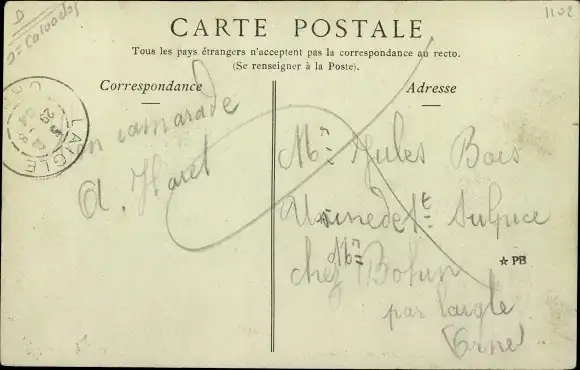 D = Calvados
1102
CARTE POSTALE
Tous les pays étrangers n'acceptent pas la correspondance au recto.
(Se renseigner à la Poste).
Correspondance
Adresse
LAIGLE
un camarade
A. Haret
Mn. Jules Baes
Usine de St. Sulpice
chez Mn Bohin
★ PB
par laigle
(Orne)